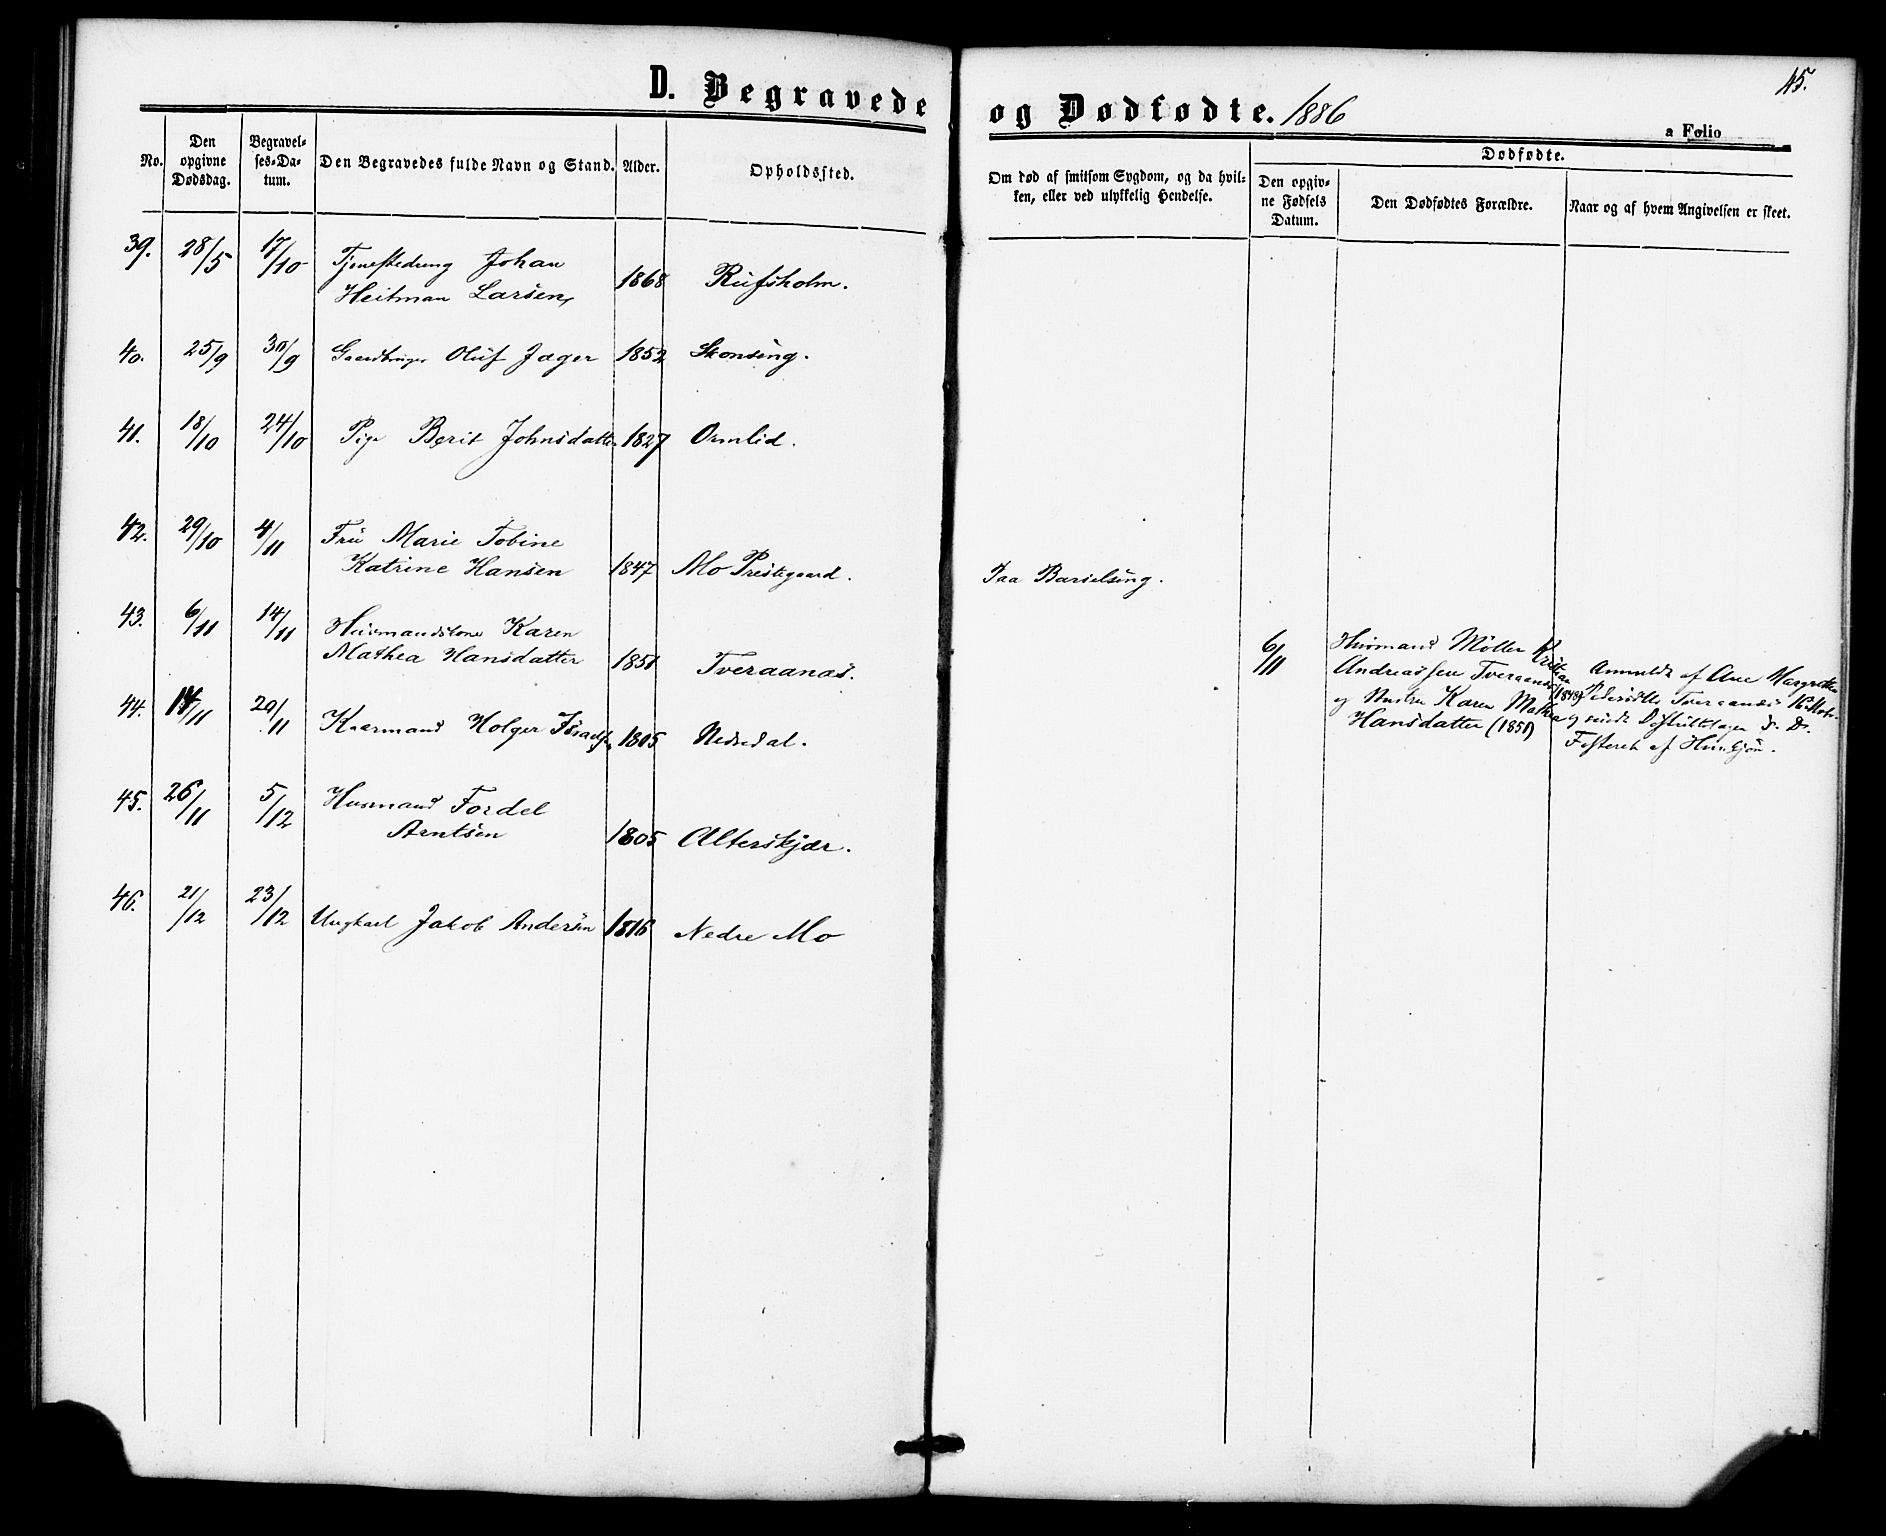 D. Begravede og Dødfødte. 1886
45.
a Folio
No.
Den opgivne Dødsdag.
Begravelses-Datum.
Den Begravedes fulde Navn og Stand.
Alder.
Opholdssted.
Om død af smitsom Sygdom, og da hvilken, eller ved ulykkelig Hendelse.
Dødfødte.
Den opgivne Fødsels Datum.
Den Dødfødtes Forældre.
Naar og af hvem Angivelsen er skeet.
39. 28/5 17/10 Tjenestedreng Johan
Heitman Larsen, 1868 Rufsholm.
40. 25/9 30/9 Gaardbruger Oluf Jæger 1852 Skonseng.
41. 18/10 24/10 Pige Berit Johnsdatter 1827 Ormlid.
42. 29/10 4/11 Fru Marie Tobine
Katrine Hansen 1847 Mo Prestegaard. Paa Barselseng.
43. 6/11 14/11 Husmandskone Karen
Mathea Hansdatter 1851 Tveraanæs.
6/11 Husmand Møller Kristian
Andreassen Tveraanæs (1848)
og Hustru Karen Mathea
Hansdatter (1851)
Anmeldt af Ane Margrethe
Pedersdtr Tveraanæs
Fosteret af Hunkjøn.
44. 14/11 20/11 Kaarmand Holger Israels. 1805 Nedredal.
45. 26/11 5/12 Husmand Fordel
Arntsen 1805 Alterskjær.
46. 21/12 23/12 Ungkarl Jakob Andersen 1816 Nedre Mo